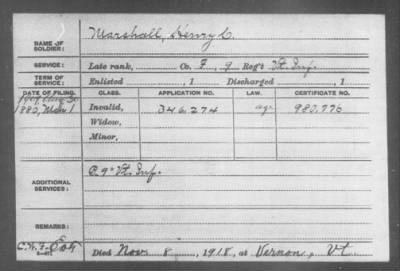 NAME OF SOLDIER: Marshall, Henry C.
SERVICE: Late rank, Co. F, 9 Reg't Vt. Inf.
TERM OF SERVICE: Enlisted , 1 Discharged , 1
DATE OF FILING. CLASS. APPLICATION NO. LAW. CERTIFICATE NO.
1907, Aug 30
1880, Mar 1 Invalid, 346,274 age 980,776
Widow,
Minor,
ADDITIONAL SERVICES: C. 9" Vt. Inf.
REMARKS:
Died Nov. 8, 1918, at Vernon, Vt.